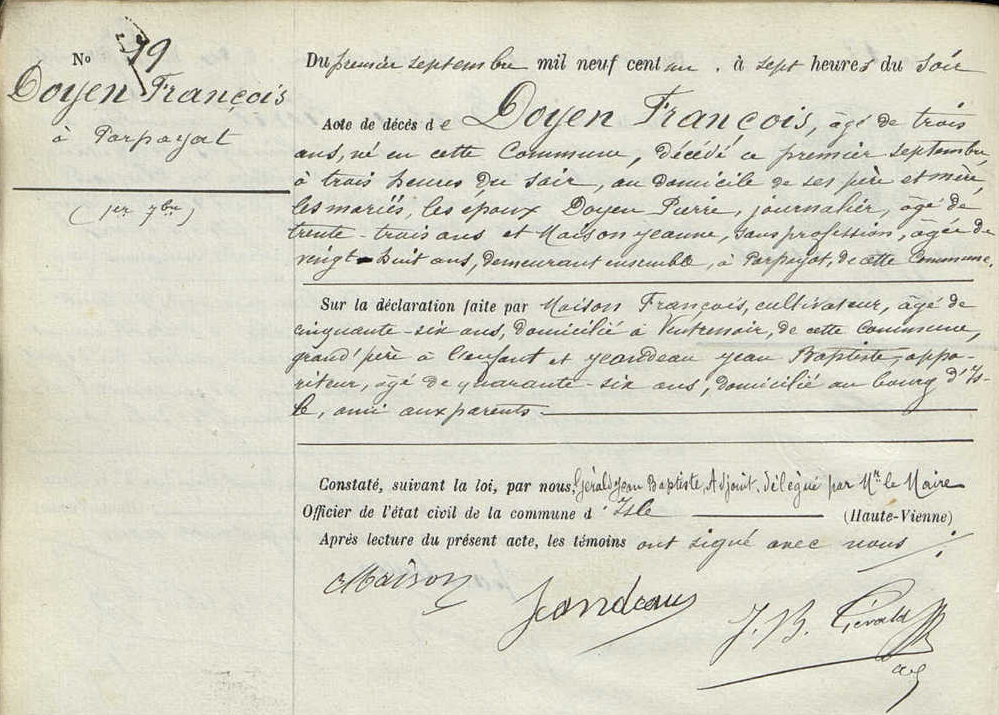 No 19
Doyen François
à Parpayat
(1er 7bre)
Du premier septembre mil neuf cent un . à sept heures du soir
Acte de décès de Doyen François, âgé de trois
ans, né en cette Commune, décédé ce premier septembre,
à trois heures du soir, au domicile de ses père et mère,
les mariés, les époux Doyen Pierre, journalier, âgé de
trente-trois ans et Maison Jeanne, sans profession, âgée de
vingt-huit ans, demeurant ensemble, à Parpayat, de cette Commune.
Sur la déclaration faite par Maison François, cultivateur, âgé de
cinquante-six ans, domicilié à Ventenoir, de cette Commune,
grand'père à l'enfant et Jeandeau Jean Baptiste, appa-
riteur, âgé de quarante-six ans, domicilié au bourg d'Is-
le, ami aux parents
Constaté, suivant la loi, par nous, Gérald Jean Baptiste, Adjoint, délégué par Mr le Maire
Officier de l'état civil de la commune d'Isle (Haute-Vienne)
Après lecture du présent acte, les témoins ont signé avec nous ./.
Maison
Jeandeau
J. B. Gérald